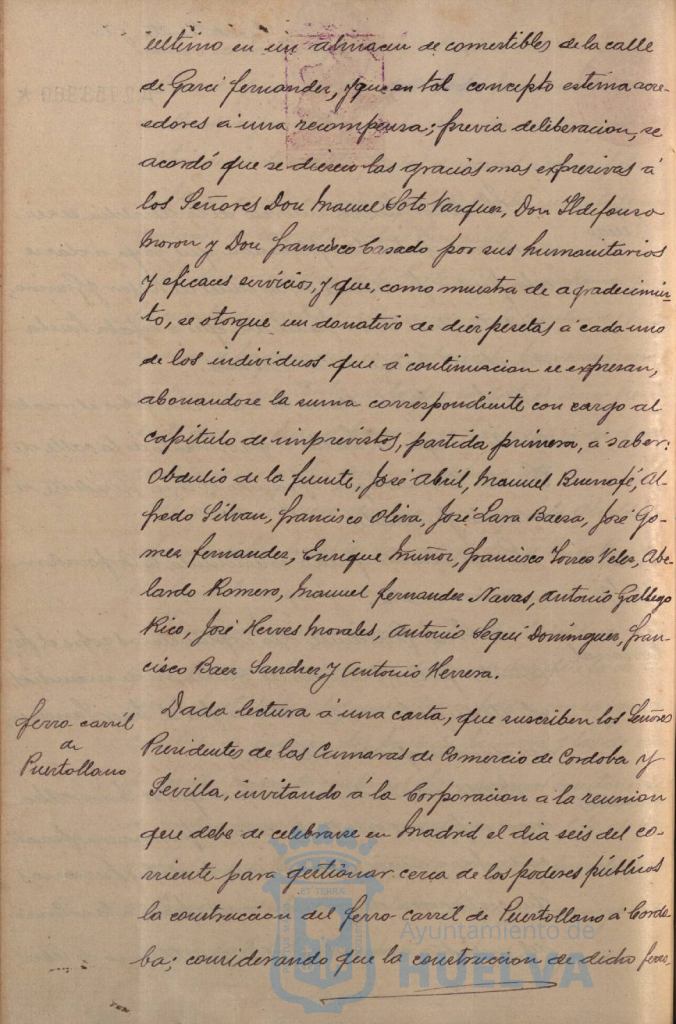 ultimo en un almacen de comestibles de la calle
de Garci Fernandez, y que en tal concepto estima acre-
edores á una recompensa; previa deliberacion, se
acordó que se diesen las gracias mas expresivas á
los Señores Don Manuel Soto Vazquez, Don Ildefonso
Moron y Don Francisco Casado por sus humanitarios
y eficaces servicios, y que, como muestra de agradecimien-
to, se otorgue un donativo de diez pesetas á cada uno
de los individuos que á continuacion se expresan,
abonandose la suma correspondiente con cargo al
capitulo de imprevistos, partida primera, á saber:
Obdulio de la Fuente, José Abril, Manuel Buenafé, Al-
fredo Silvan, Francisco Oliva, José Lara Baeza, José Go-
mez Fernandez, Enrique Muñoz, Francisco Torres Velez, Abe-
lardo Romero, Manuel Fernandez Navas, Antonio Gallego
Rico, José Herves Morales, Antonio Seguí Dominguez, Fran-
cisco Baez Sanchez y Antonio Herrera.
ferro-carril
de
Puertollano
Dada lectura á una carta, que suscriben los Señores
Presidentes de las Camaras de Comercio de Cordoba y
Sevilla, invitando á la Corporacion a la reunion
que debe de celebrarse en Madrid el dia seis del co-
rriente para gestionar cerca de los poderes públicos
la construccion del ferro-carril de Puertollano á Cordo-
ba; considerando que la construccion de dicho ferro-
Ayuntamiento de
HUELVA